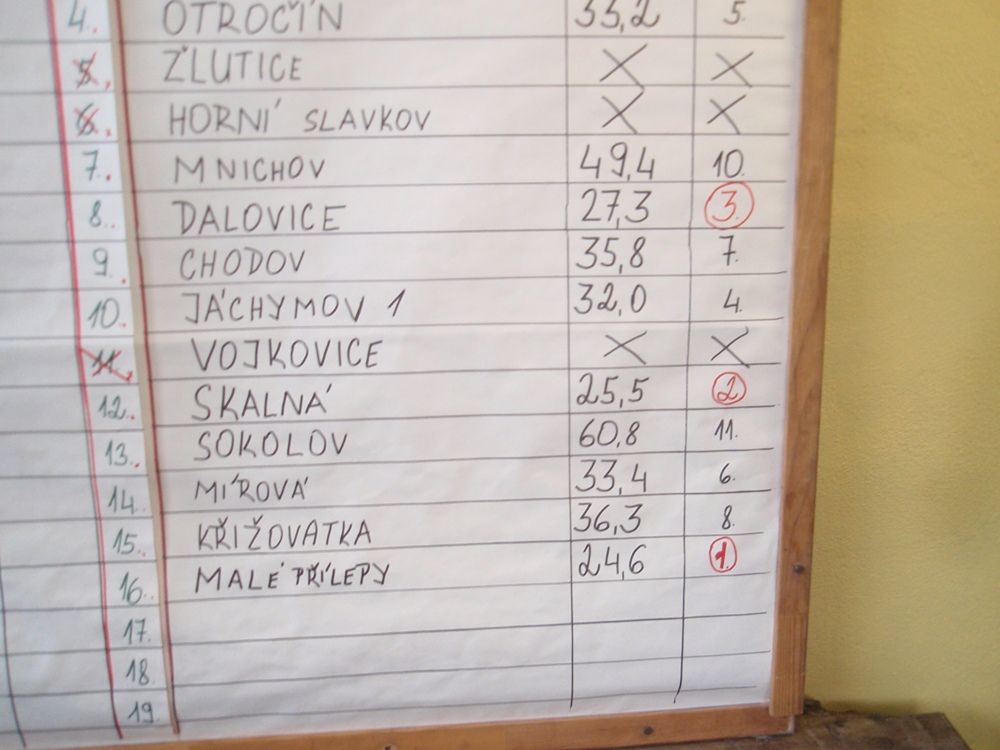 4. OTROČÍN 33,2 5.
5. ŽLUTICE X X
6. HORNÍ SLAVKOV X X
7. MNICHOV 49,4 10.
8. DALOVICE 27,3 3.
9. CHODOV 35,8 7.
10. JÁCHYMOV 1 32,0 4.
11. VOJKOVICE X X
12. SKALNÁ 25,5 2
13. SOKOLOV 60,8 11.
14. MÍROVÁ 33,4 6.
15. KŘIŽOVATKA 36,3 8.
16. MALÉ PŘÍLEPY 24,6 1.
17.
18.
19.